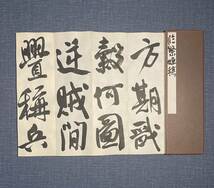 方期戩
穀何圖
逆賊間
釁稱兵